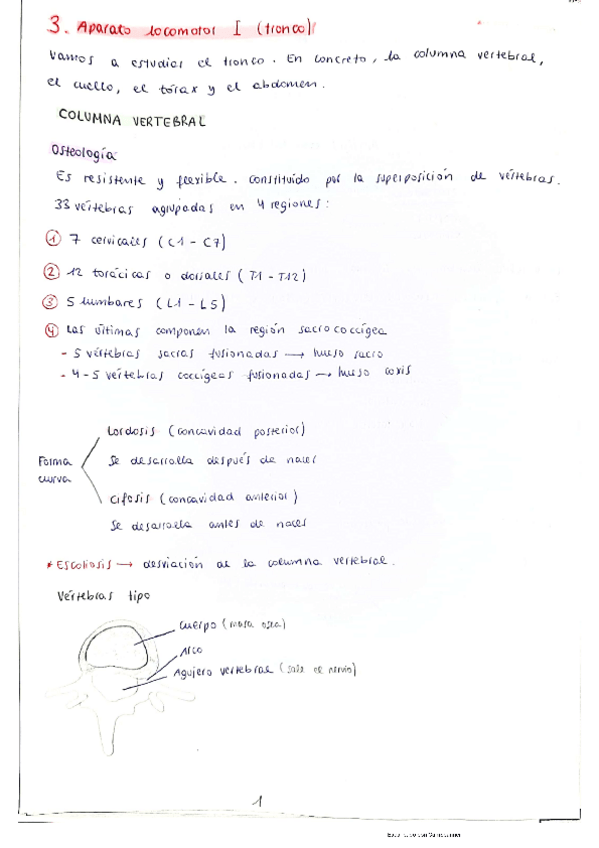 3. Aparato locomotor I (tronco)
Vamos a estudiar el tronco. En concreto, la columna vertebral,
el cuello, el tórax y el abdomen.
COLUMNA VERTEBRAL
Osteología
Es resistente y flexible. Constituido por la superposición de vértebras.
33 vértebras agrupadas en 4 regiones:
① 7 cervicales (C1 - C7)
② 12 torácicas o dorsales (T1 - T12)
③ 5 lumbares (L1 - L5)
④ Las últimas componen la región sacrococcígea
- 5 vértebras sacras fusionadas → hueso sacro
- 4-5 vértebras coccígeas fusionadas → hueso coxis
Forma curva
Lordosis (concavidad posterior)
Se desarrolla después de nacer
Cifosis (concavidad anterior)
Se desarrolla antes de nacer
* Escoliosis → desviación de la columna vertebral.
Vértebras tipo
Cuerpo (masa osea)
Arco
Agujero vertebral (sale el nervio)
1